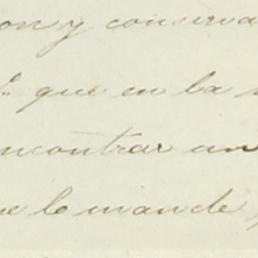 on y conserva
que en la
ncontrar un
e le mande